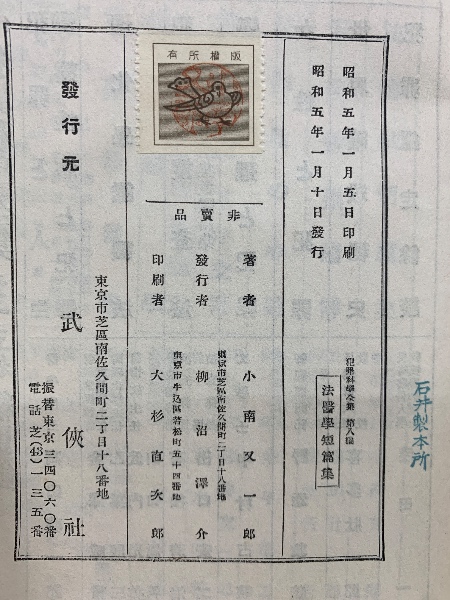 石井製本所
昭和五年一月五日印刷
昭和五年一月十日發行
犯罪科學全集 第八編
法醫學短篇集
非賣品
著者 小南又一郎
東京市芝區南佐久間町二丁目十八番地
發行者 柳沼澤介
東京市牛込區若松町五十四番地
印刷者 大杉直次郎
版權所有
東京市芝區南佐久間町二丁目十八番地
發行元 武俠社
振替東京三四〇六〇番
電話芝(43)一三五番